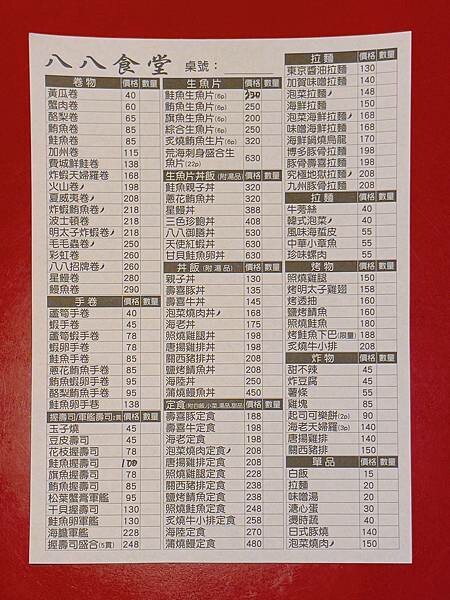 八八食堂 桌號：
卷物 價格 數量
黃瓜卷 40
蟹肉卷 60
酪梨卷 65
鮪魚卷 85
鮭魚卷 85
加州卷 115
費城鮮鮭卷 138
炸蝦天婦羅卷 168
火山卷 198
夏威夷卷 218
炸蝦鮪魚卷 218
波士頓卷 218
明太子炸蝦卷 218
毛毛蟲卷 250
彩虹卷 260
八八招牌卷 280
星鰻卷 280
鰻魚卷 290
手卷 價格 數量
蘆筍手卷 40
蝦手卷 45
蘆筍蝦手卷 78
蝦卵手卷 78
鮭魚手卷 85
蔥花鮪魚手卷 85
鮪魚蝦卵手卷 95
酪梨鮪魚手卷 95
鮭魚卵手巷 138
握壽司/軍艦壽司1貫 價格 數量
玉子燒 45
豆皮壽司 45
花枝握壽司 78
鮭魚握壽司 100
旗魚握壽司 78
鮪魚握壽司 85
松葉蟹膏軍艦 95
干貝握壽司 130
鮭魚卵軍艦 130
海膽軍艦 228
握壽司盛合(5貫) 248
生魚片 價格 數量
鮭魚生魚片(6p) 230
鮪魚生魚片(6p) 250
旗魚生魚片(6p) 200
綜合生魚片(6p) 250
炙燒鮪魚生片(6p) 320
荒海刺身盛合生魚片(22p) 630
生魚片丼飯(附湯品) 價格 數量
鮭魚親子丼 320
蔥花鮪魚丼 320
星鰻丼 388
三色珍鮑丼 408
八八御膳丼 530
天使紅蝦丼 630
甘貝鮭魚卵丼 630
丼飯(附湯品) 價格 數量
親子丼 130
壽喜豚丼 135
壽喜牛丼 145
泡菜燒肉丼 168
海老丼 175
照燒雞腿丼 198
唐揚雞排丼 198
關西豬排丼 208
鹽烤鯖魚丼 208
海陸丼 250
蒲燒鰻魚丼 450
定食(附白飯,小菜,湯品,甜品) 價格 數量
壽喜豚定食 188
壽喜牛定食 198
海老定食 198
泡菜燒肉定食 208
唐揚雞排定食 208
照燒雞腿定食 228
關西豬排定食 238
鹽烤鯖魚定食 238
鹽燒鮭魚定食 248
炙燒牛小排定食 258
海陸定食 270
蒲燒鰻定食 480
拉麵 價格 數量
東京醬油拉麵 130
加賀味噌拉麵 140
泡菜拉麵 148
海鮮拉麵 150
泡菜海鮮拉麵 168
味噌海鮮拉麵 168
海鮮鍋燒烏龍 170
博多豚骨拉麵 198
豚骨壽喜拉麵 198
究極地獄拉麵 208
九州豚骨拉麵 198
拉麵 價格 數量
牛蒡絲 40
韓式泡菜 40
風味海蜇皮 55
中華小章魚 55
珍味螺肉 55
烤物 價格 數量
照燒雞腿 150
烤明太子雞翅 158
烤透抽 160
鹽燒鯖魚 160
照燒鮭魚 180
烤鮭魚下巴(限量) 188
炙燒牛小排 208
炸物 價格 數量
甜不辣 45
炸豆腐 45
薯條 55
雞塊 85
起司可樂餅(2p) 90
海老天婦羅(3p) 140
唐揚雞排 140
關西豬排 150
單品 價格 數量
白飯 15
拉麵 20
味噌湯 20
溏心蛋 30
燙時蔬 40
日式豚燒 140
泡菜燒肉 150